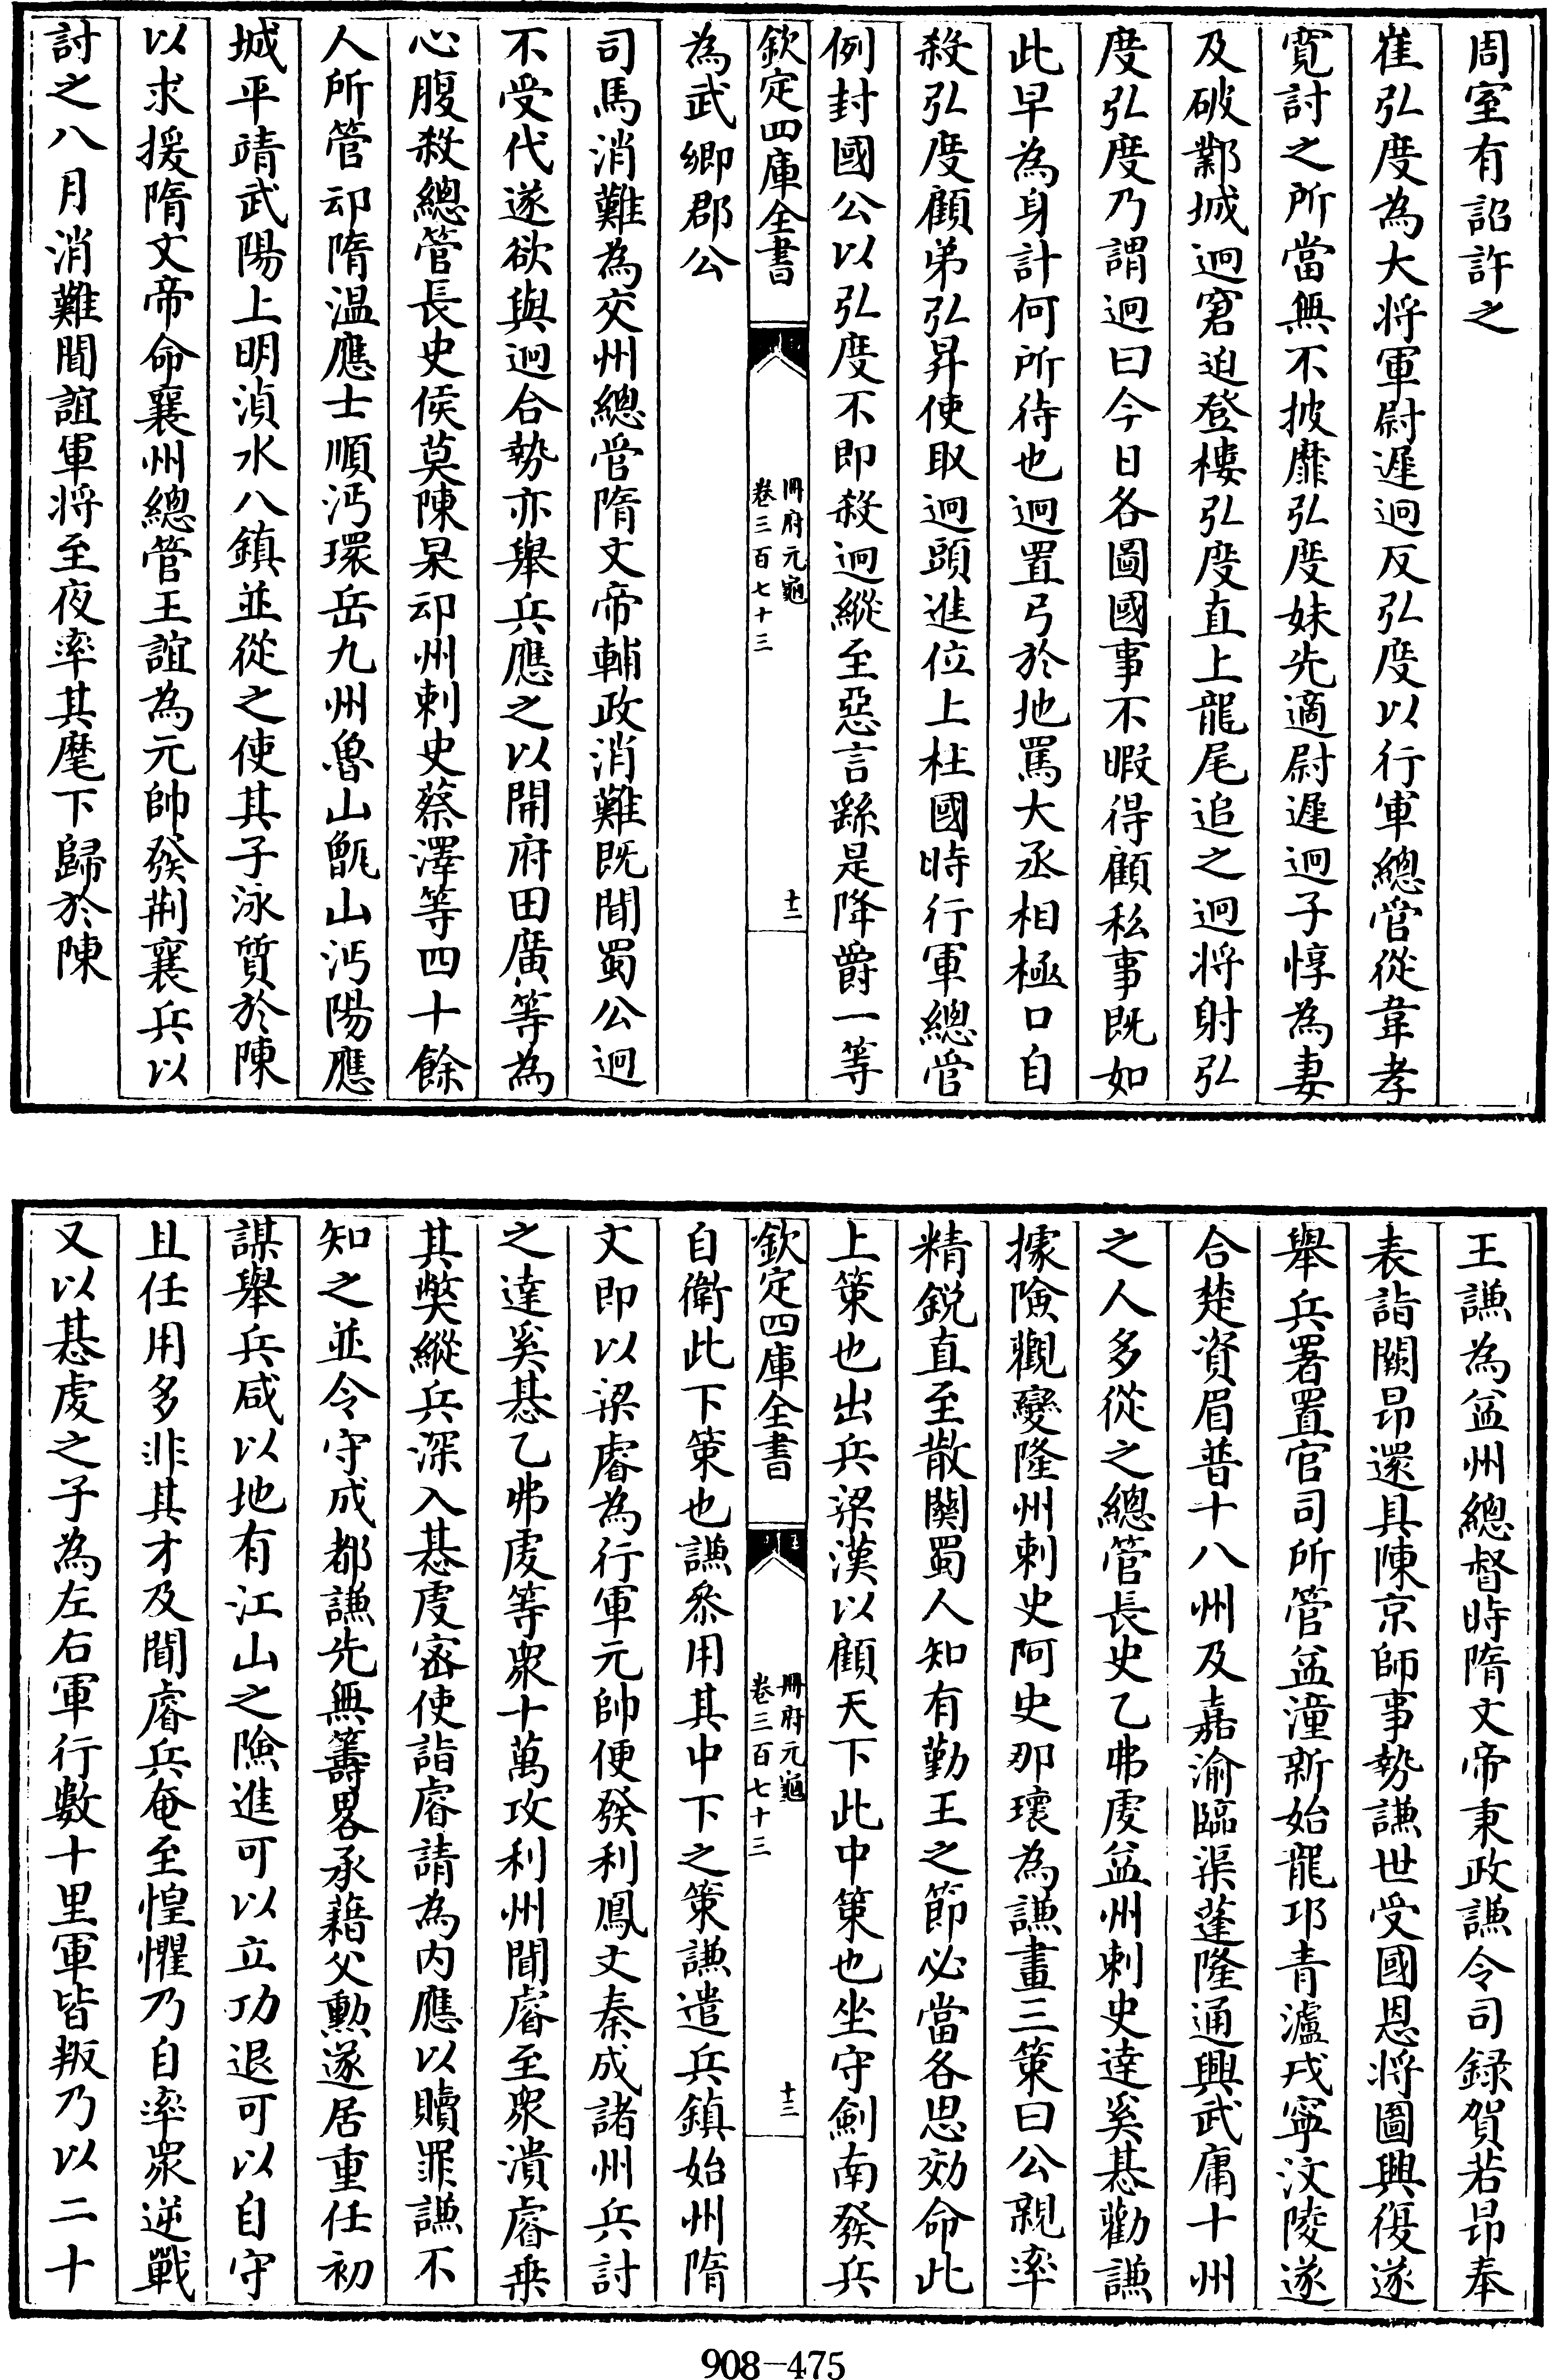 周室有詔許之
崔弘度為大將軍尉遲迥反弘度以行軍總管從韋孝
寛討之所當無不披靡弘度妹先適尉遲迥子惇為妻
及破鄴城迥窘迫登樓弘度直上龍尾追之迥將射弘
度弘度乃謂迥曰今日各圖國事不暇得顧私事既如
此早為身計何所待也迥置弓於地罵大丞相極口自
殺弘度顧弟弘昇使取迥頭進位上柱國時行軍總管
例封國公以弘度不即殺迥縱至惡言繇是降爵一等
欽定四庫全書
冊府元龜
卷三百七十三
十二
為武鄉郡公
司馬消難為交州總管隋文帝輔政消難既聞蜀公迥
不受代遂欲與迥合勢亦舉兵應之以開府田廣等為
心腹殺總管長史侯莫陳杲䢴州刺史蔡澤等四十餘
人所管䢴隋温應士順沔環岳九州魯山甑山沔陽應
城平靖武陽上明溳水八鎮並從之使其子泳質於陳
以求援隋文帝命襄州總管王誼為元帥發荆襄兵以
討之八月消難聞誼軍將至夜率其麾下歸於陳
王謙為益州總督時隋文帝秉政謙令司録賀若昂奉
表詣闕昂還具陳京師事勢謙世受國恩將圖興復遂
舉兵署置官司所管益潼新始龍邛青瀘戎寧汶陵遂
合楚資眉普十八州及嘉渝臨渠蓬隆通興武庸十州
之人多從之總管長史乙弗虔益州刺史達奚惎勸謙
據險觀變隆州刺史阿史那瓌為謙畫三策曰公親率
精鋭直至散關蜀人知有勤王之節必當各思効命此
上策也出兵梁漢以顧天下此中策也坐守劍南發兵
欽定四庫全書
冊府元龜
卷三百七十三
十三
自衛此下策也謙叅用其中下之策謙遣兵鎮始州隋
文即以梁睿為行軍元帥便發利鳳文秦成諸州兵討
之達奚惎乙弗虔等衆十萬攻利州聞睿至衆潰睿乗
其弊縱兵深入惎虔密使詣睿請為内應以贖罪謙不
知之並令守成都謙先無籌畧承藉父勲遂居重任初
謀舉兵咸以地有江山之險進可以立功退可以自守
且任用多非其才及聞睿兵奄至惶懼乃自率衆逆戰
又以惎虔之子為左右軍行數十里軍皆叛乃以二十
908-475